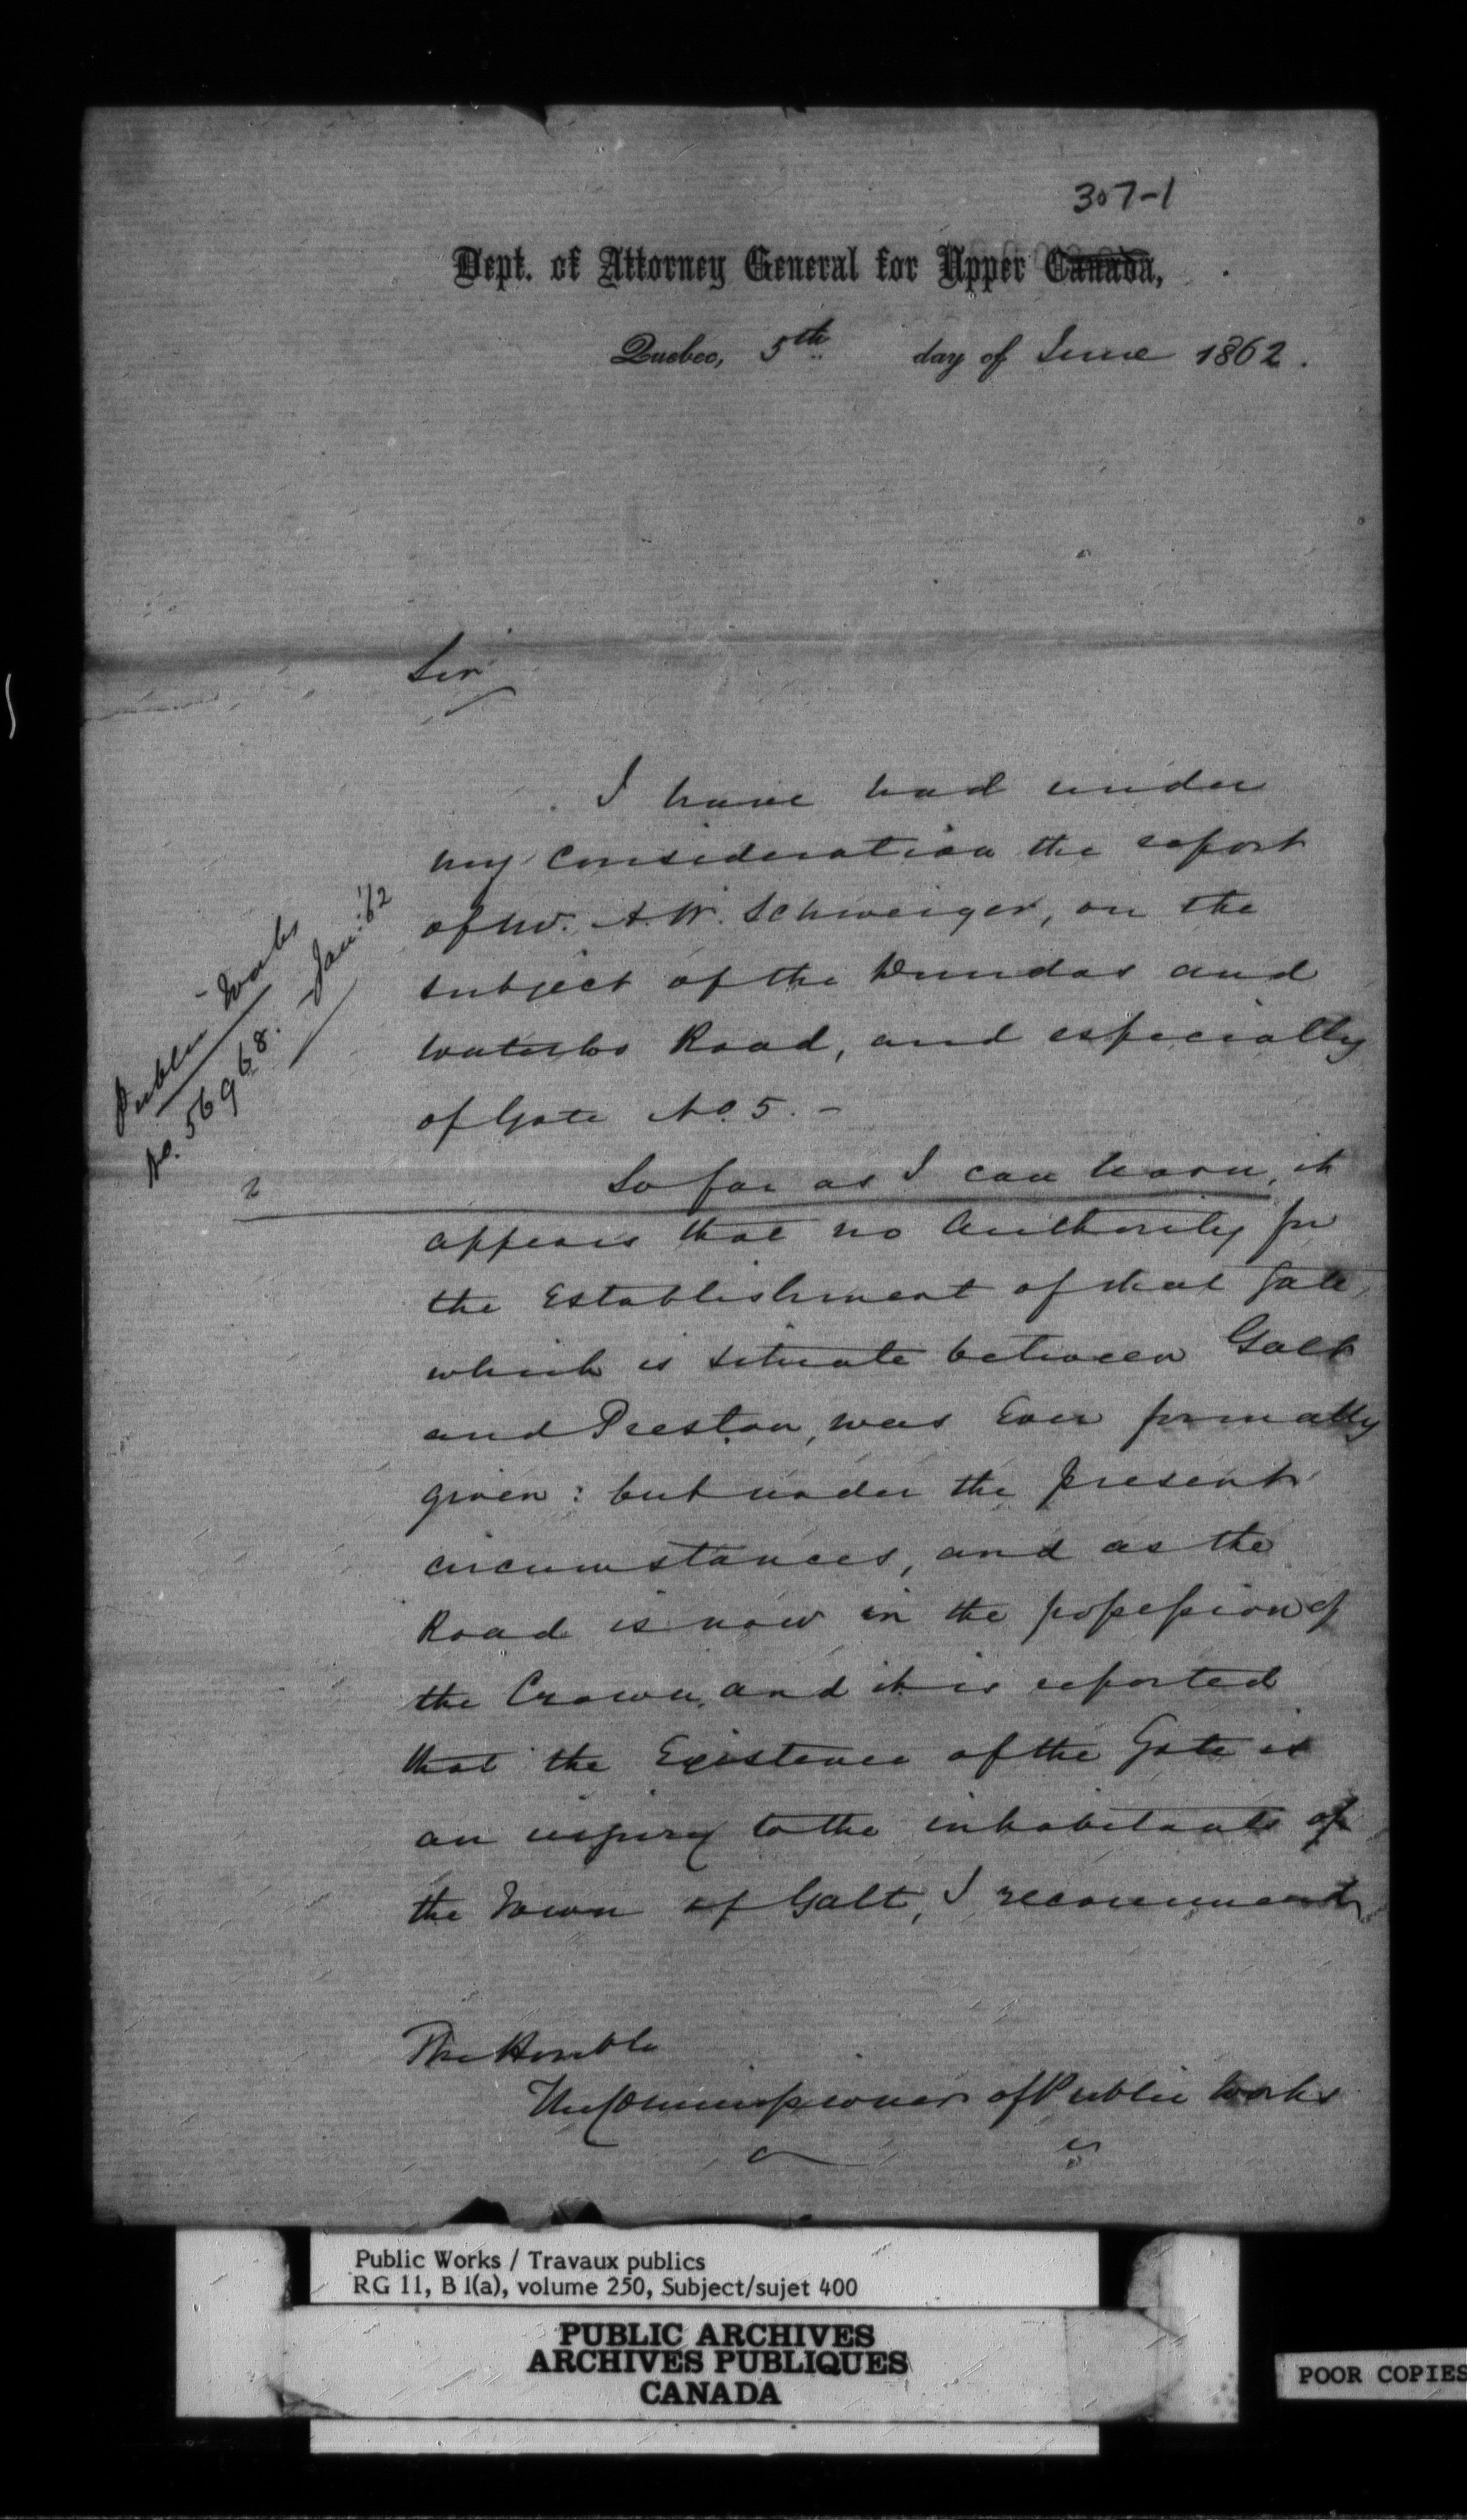 307-1
Dept. of Attorney General for Upper Canada,
Quebec, 5th day of June 1862.
Sir
I have had under
my consideration the report
of Mr. A. W. Schweiger, on the
subject of the Dundas and
Waterloo Road, and especially
of Gate No. 5. -
Public Works
No. 56968. Jan: '62
2
So far as I can learn, it
appears that no authority for
the Establishment of that Gate,
which is situate between Galt
and Preston, was Ever formally
given: but under the present
circumstances, and as the
Road is now in the possession of
the Crown, and it is reported
that the Existence of the Gate is
an injury to the inhabitants of
the Town of Galt, I recommend
The Honble
The Commissioner of Public Works
Public Works / Travaux publics
RG 11, B 1(a), volume 250, Subject/sujet 400
PUBLIC ARCHIVES
ARCHIVES PUBLIQUES
CANADA
POOR COPIES